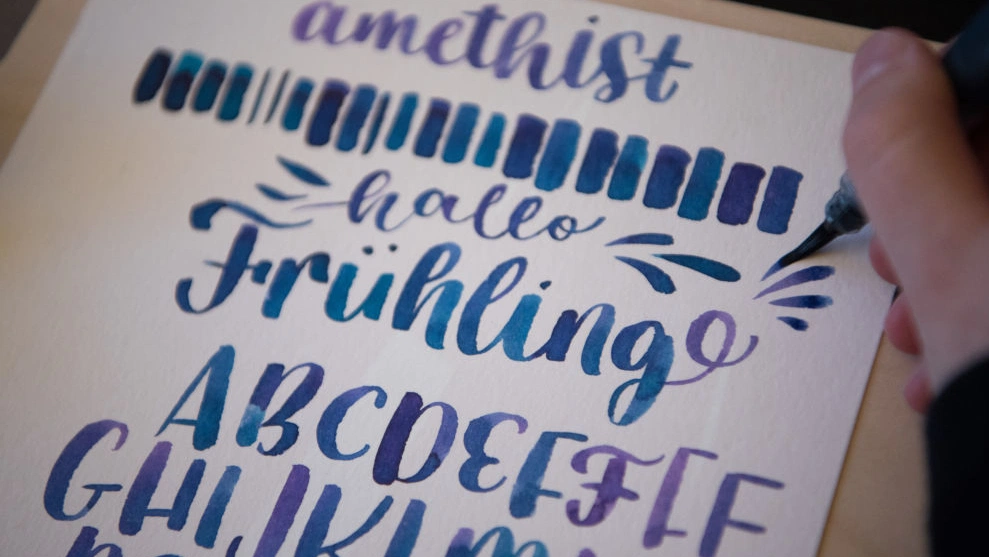 amethist
hallo
Frühling
ABCDEEFFF
GHIJKLM